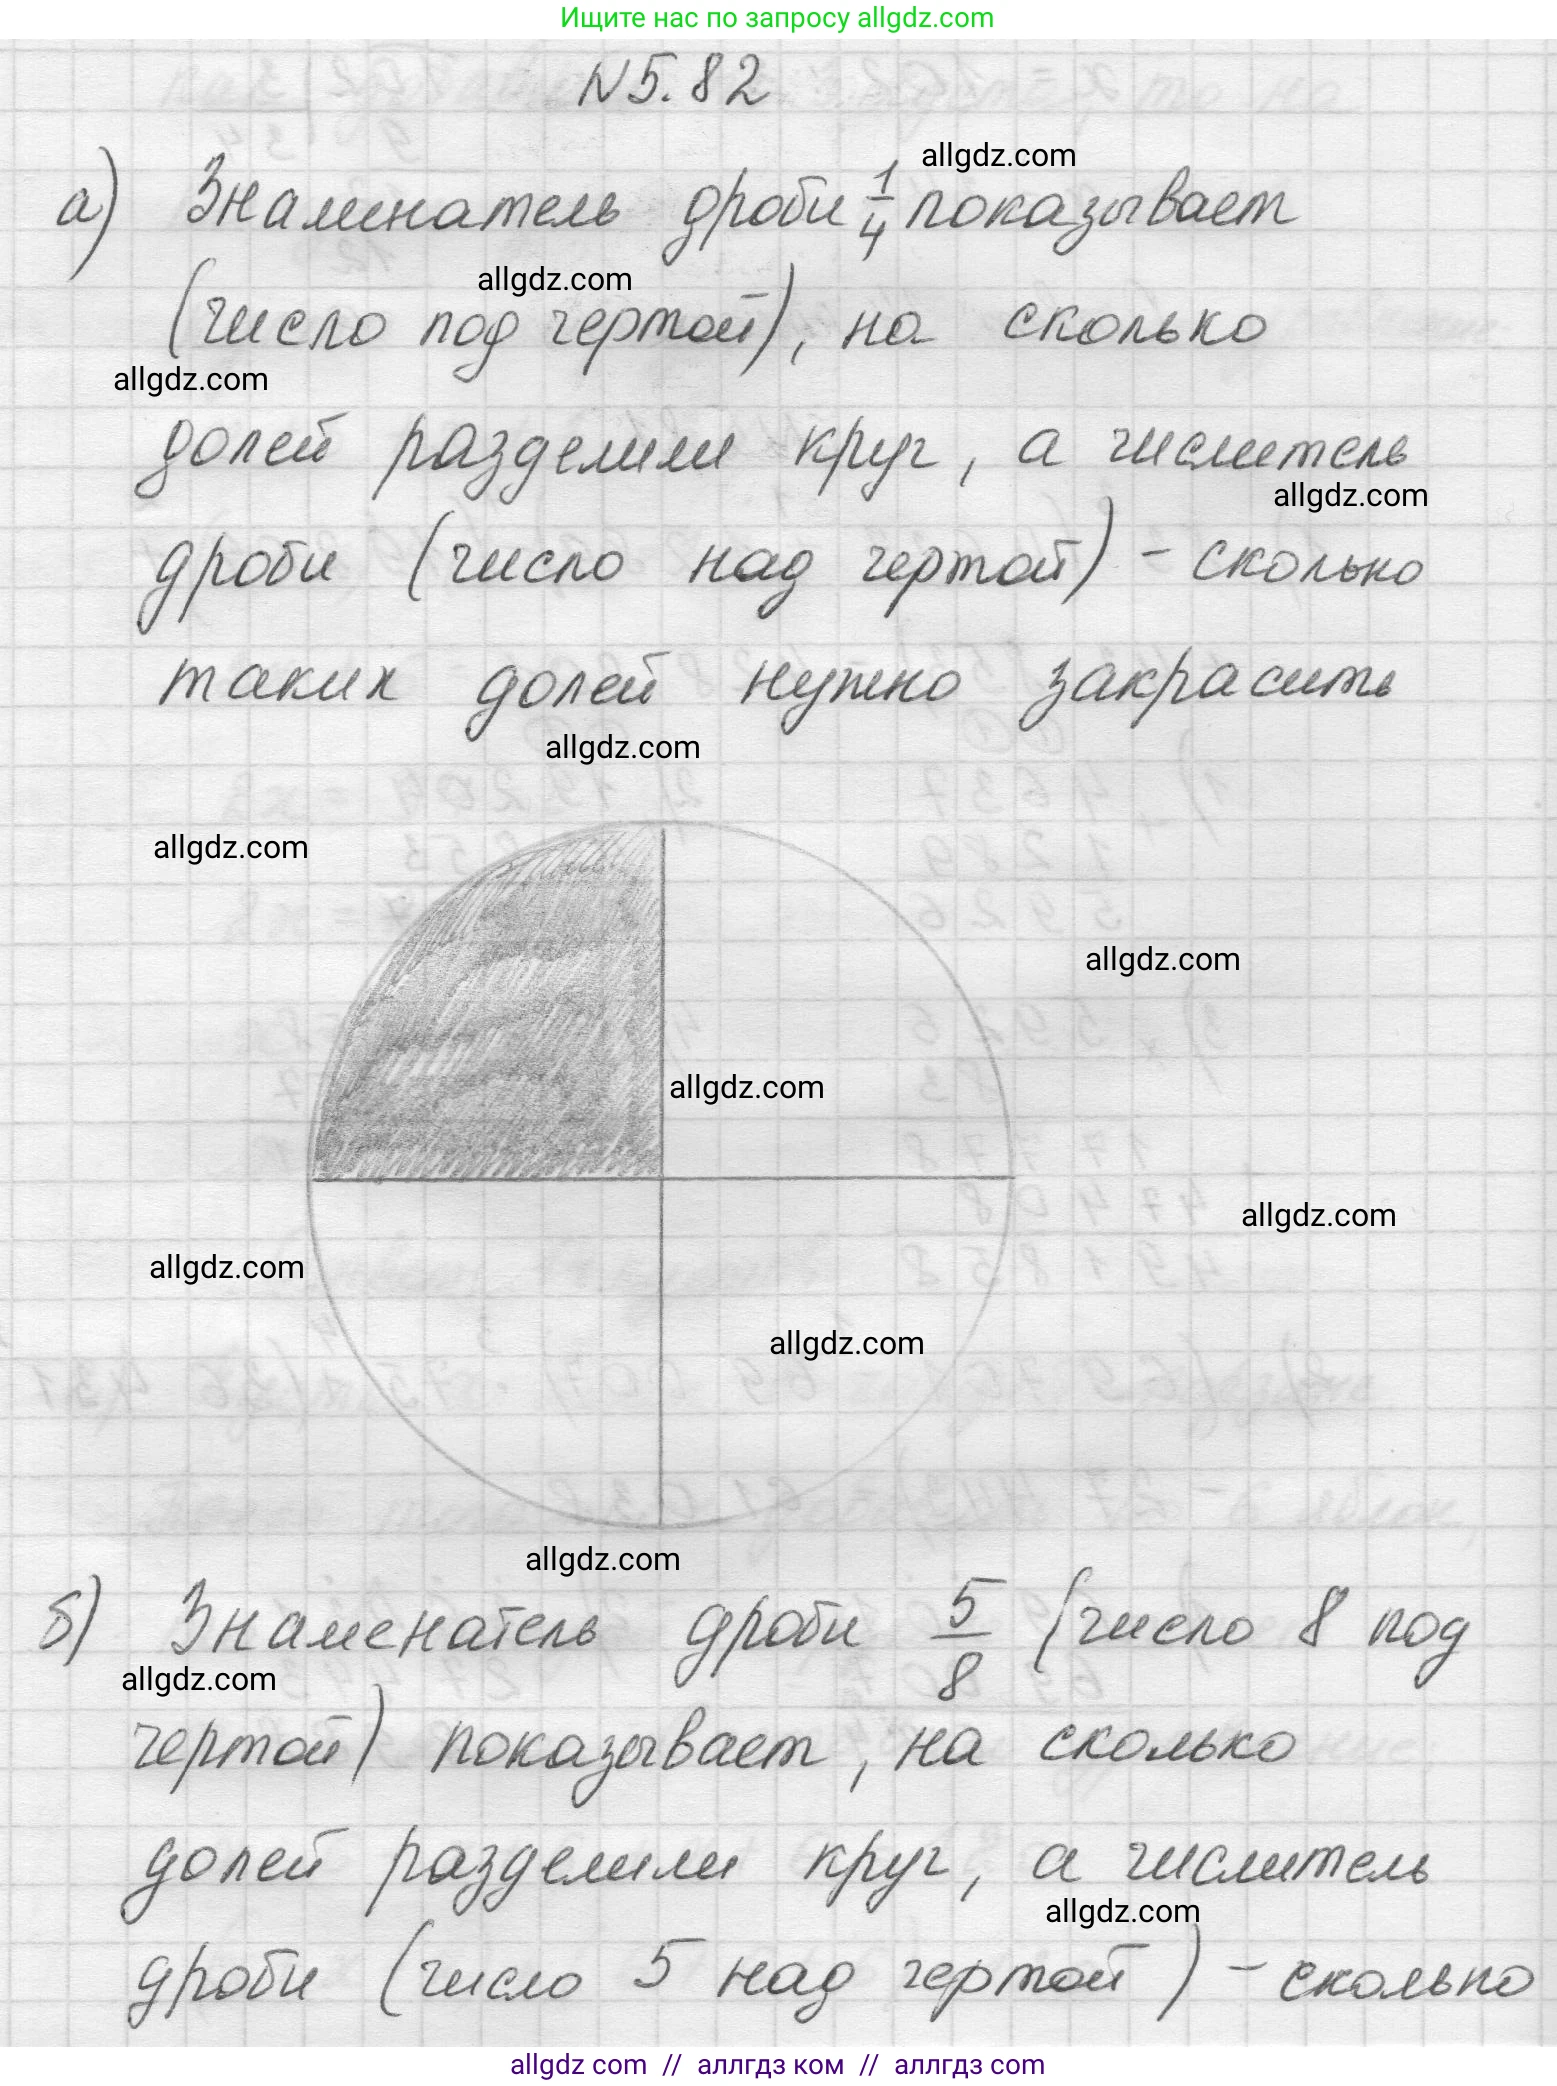 Ищите нас по запросу allgdz.com
N 5.82
allgdz.com
а) Знаминатель дроби 1/4 показывает
allgdz.com
(число под чертой), на сколько
allgdz.com
долей разделили круг, а числитель
allgdz.com
дроби (число над чертой) - сколько
таких долей нужно закрасить
allgdz.com
allgdz.com
allgdz.com
allgdz.com
allgdz.com
allgdz.com
allgdz.com
allgdz.com
б) Знаменатель дроби 5/8 (число 8 под
allgdz.com
чертой) показывает, на сколько
долей разделили круг, а числитель
allgdz.com
дроби (число 5 над чертой) - сколько
allgdz com // аллгдз ком // аллгдз com